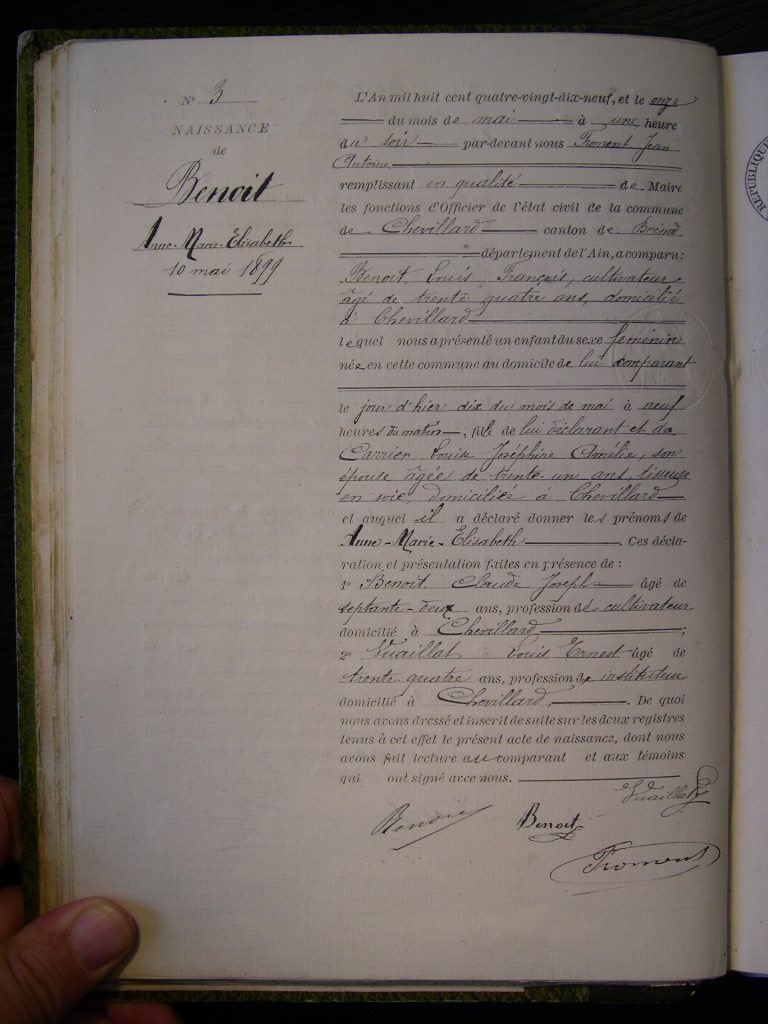 N° 3
NAISSANCE
de
Benoit
Anne-Marie-Elisabeth
10 mai 1899
L'An mil huit cent quatre-vingt-dix-neuf, et le onze
du mois de mai à une heure
du soir par-devant nous Froment Jean
Antoine
remplissant en qualité de Maire
les fonctions d'Officier de l'état civil de la commune
de Chevillard canton de Brénod
département de l'Ain, a comparu :
Benoit, Louis François, cultivateur,
âgé de trente quatre ans, domicilié
à Chevillard
lequel nous a présenté un enfant du sexe feminin
née en cette commune au domicile de lui comparant
le jour d'hier dix du mois de mai à neuf
heures du matin, fille de lui déclarant et de
Carrier Louise Joséphine Amélie, son
épouse âgée de trente-un ans, tisseuse
en soie, domiciliée à Chevillard
et auquel il a déclaré donner les prénoms de
Anne-Marie-Elisabeth. Ces décla-
ration et présentation faites en présence de :
1° Benoit, Claude Joseph âgé de
septante-deux ans, profession de cultivateur
domicilié à Chevillard ;
2° Vuaillat Louis Ernest âgé de
trente quatre ans, profession de instituteur
domicilié à Chevillard. De quoi
nous avons dressé et inscrit de suite sur les deux registres
tenus à cet effet le présent acte de naissance, dont nous
avons fait lecture au comparant et aux témoins
qui ont signé avec nous.
Vuaillat
Benoit Benoit
Froment